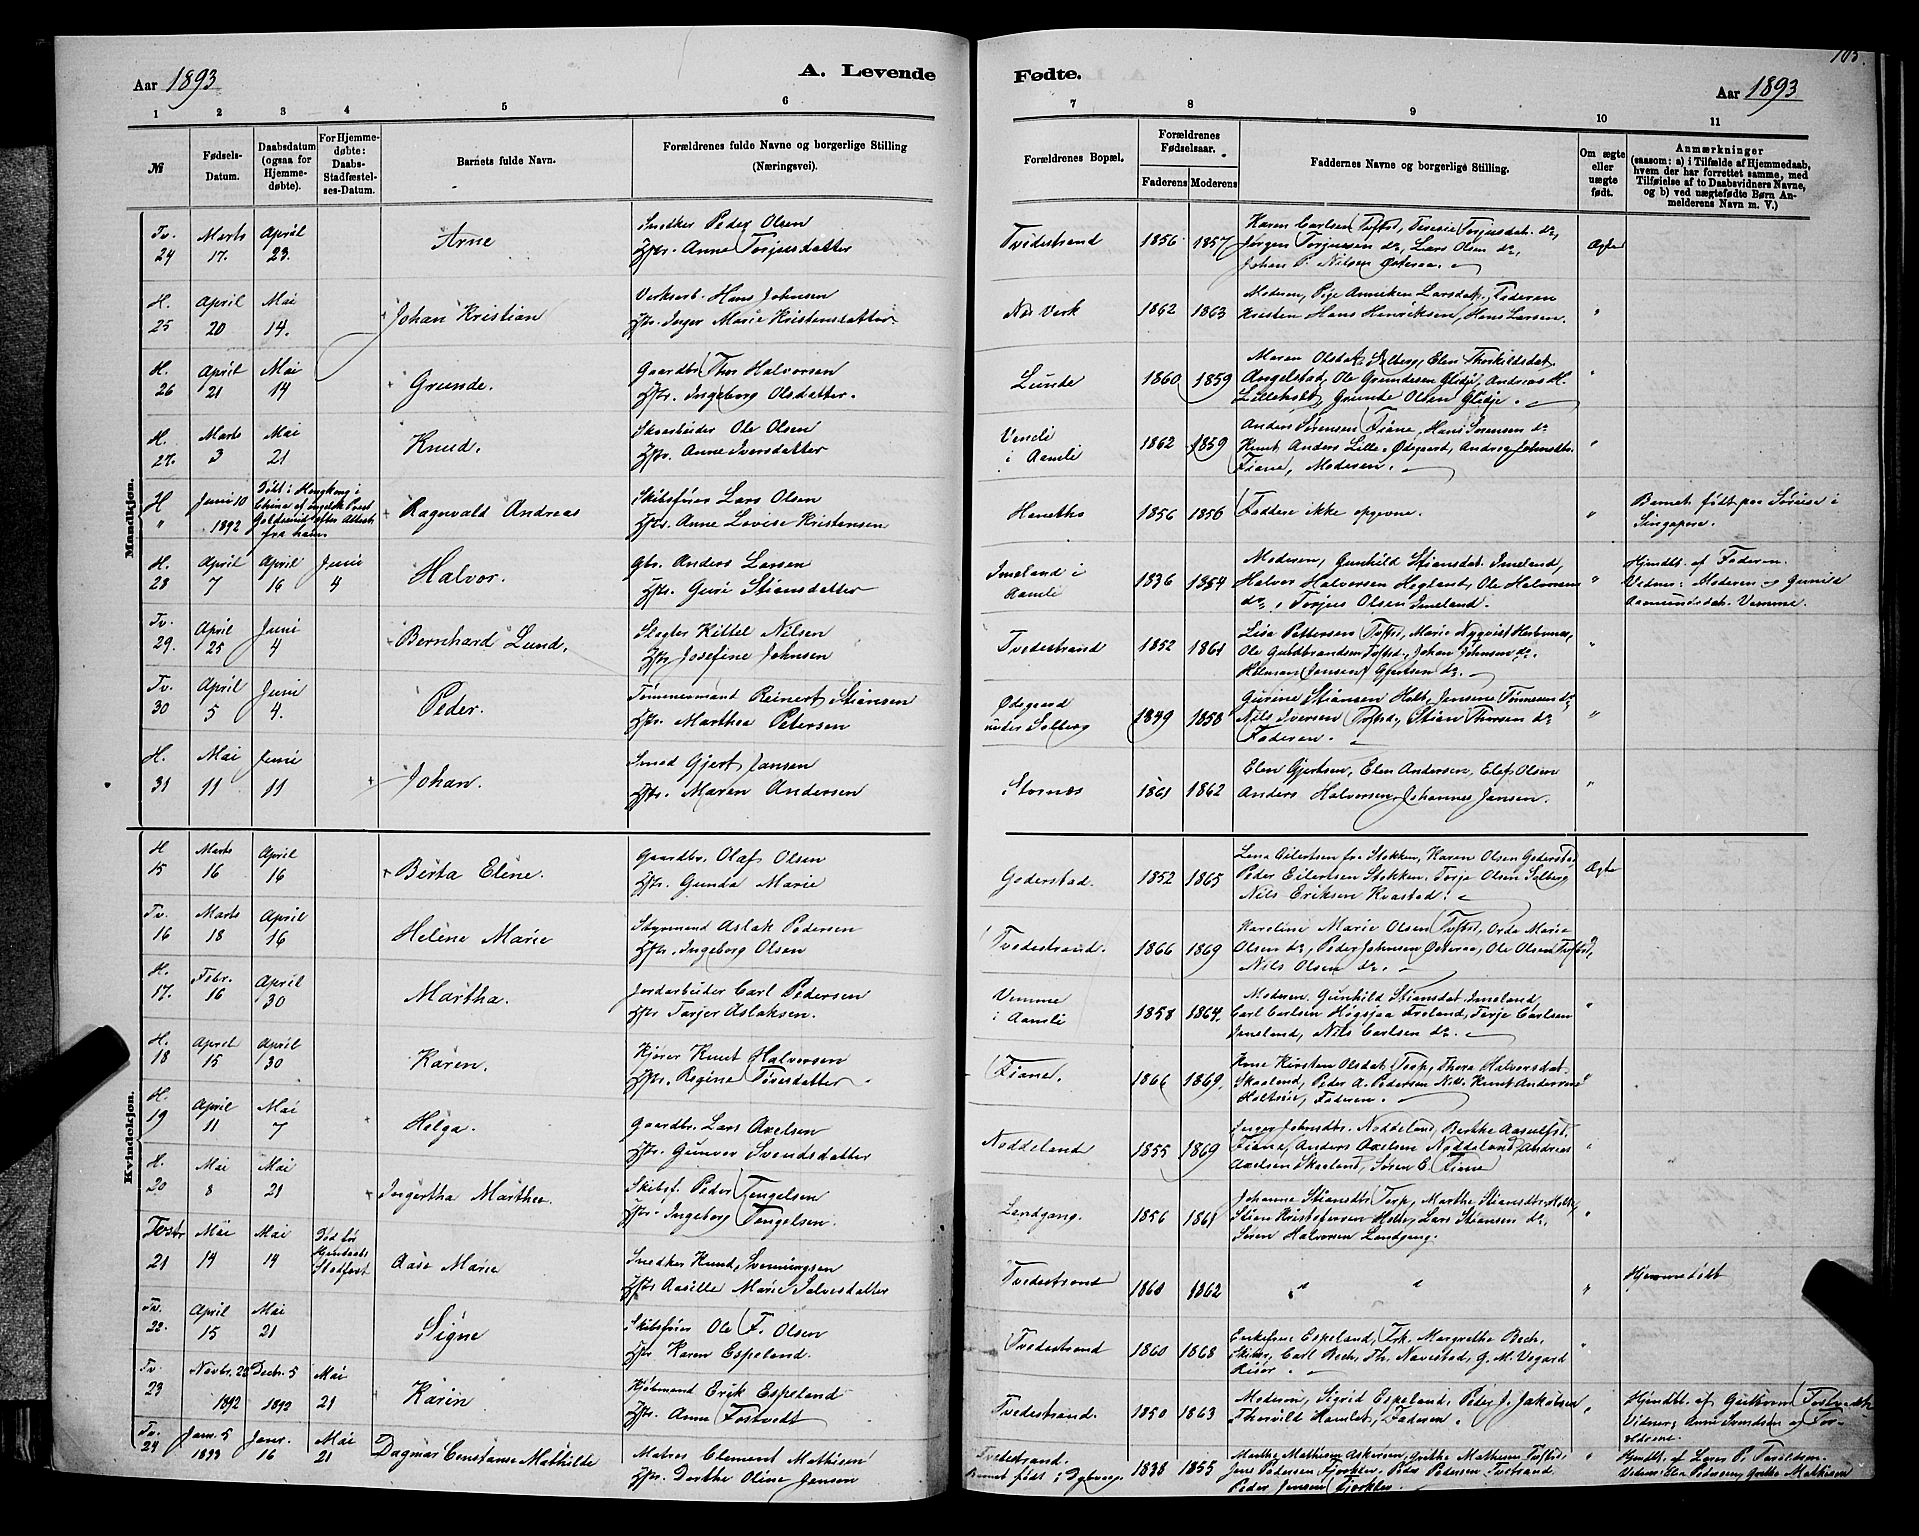 Aar 1893
A. Levende
Fødte.
Aar 1893
1 2 3 4 5 6 7 8 9 10 11
№
Fødsels-Datum.
Daabsdatum (ogsaa for Hjemmedøbte).
For Hjemmedøbte: Daabs-Stadfæstelses-Datum.
Barnets fulde Navn.
Forældrenes fulde Navne og borgerlige Stilling (Næringsvei).
Forældrenes Bopæl.
Forældrenes Fødselsaar.
Faderens Moderens
Faddernes Navne og borgerlige Stilling.
Om ægte eller uægte født.
Anmærkninger (saasom: a) i Tilfælde af Hjemmedaab, hvem der har forrettet samme, med Tilføielse af to Daabsvidners Navne, og b) ved uægtefødte Børn Anmelderens Navn m. V.)
Mandkjøn.
Tv. 24 Marts 17. April 23. Arne Snedker Peder Olsen Hst. Anne Torjusdatter Tvedestrand 1856 1857 Jørgen Torjussen do, Lars Olsen do, Johan P. Nilsen Østeraa. Ægte
H. 25 April 20 Mai 14. Johan Kristian Verksarb. Hans Johnsen Inger Marie Kristensdatter Næs Verk 1862 1863 Moderen, Pige Anniken Larsdat., Faderen Kristen Hans Henriksen, Hans Larsen. "
H. 26 April 21 Mai 14 Grunde. Gaardbr. Thor Halvorsen Ingeborg Olsdatter. Lunde 1860 1859 Maren Olsdat. Solberg, Elen Thorkildsdat. Angelstad, Ole Grundesen Glidje, Andreas H. Lilleholt, Grunde Olsen Glidje. "
H. 27. Marts 3 Mai 21 Knud. Skoarbeider Ole Olsen Anne Iversdatter Vendli i Aamli 1862 1859 Anders Sørensen Fiane, Hans Sørensen do Knut Anders Lille-Ødegaard, Fiane, Moderen. "
H " Juni 10 1892 Døbt i Hongkong i China af engelsk Prest Goldsmid efter Attest fra ham. Ragnvald Andreas Skibsfører Lars Olsen Anne Lovise Kristensen 1856 1856 Faddere ikke opgivne. " Barnet født paa Søreise i Singapore.
H. 28 April 7 April 16 Juni 4 Halvor. Gbr. Anders Larsen Guri Stiansdatter Imeland i Aamli 1836 1854 Moderen, Gunhild Stiansdat. Imeland, Halvor Halvorsen Hogland, Ole Halvorsen do, Torjus Olsen Imeland. " Hjemdbt. af Faderen. Vidner: Moderen og Gunild Aamundsdat. Vemme.
Tv. 29. April 25 Juni 4 Bernhard Lund. Slagter Kittel Nilsen Josefine Johnsen Tvedestrand 1852 1861 Lisa Pettersen, Marie Nyqvist Ole Guldbrandsen, Johan Johnsen do. Jensen, Gjertsen do. "
Tv. 30 April 5 Juni 4. Peder. Tømmermand Reinert Stiansen Marthea Petersen Ødegaard under Solberg 1849 1858 Gurine Stiansen Holt, Jensine Tønnesen do Nils Iversen, Stian Thorsen do Faderen. "
H. 31 Mai 11 Juni 11 Johan. Smed Gjert Jansen Maren Andersen Stornæs 1861 1862 Elen Gjertsen, Elen Andersen, Elef Olsen Anders Halvorsen, Johannes Jansen. "
Kvindekjøn.
H 15 Marts 16 April 16 Berta Eline. Gaardbr. Olaf Olsen Gunda Marie Goderstad. 1852 1865 Lena Eilertsen fra Stokken, Karen Olsen Goderstad Peder Eilertsen Stokken, Torje Olsen Solberg Nils Eriksen Kvastad. Ægte
Tv. 16 Marts 18 April 16 Helene Marie Styrmand Aslak Pedersen Ingeborg Olsen Tvedestrand. 1866 1869 Karoline Marie Olsen, Marie Olsen do, Peder Johnsen Østeraa, Ole Olsen Nils Olsen do.
H. 17. Febr. 16 April 30 Martha. Jordarbeider Carl Pedersen Torjer Aslaksen. Vemme i Aamli 1858 1864. Moderen, Gunhild Stiansdat. Imeland, Carl Carlsen Høgsjaa Froland, Torje Carlsen Imeland, Nils Carlsen do. "
H. 18 April 15 April 30 Karen. Kjører Knut Halvorsen Regine Tøresdatter. Fiane. 1866 1869. Ane Kirstine Olsdat. Torp, Thora Halvorsdat. Skaaland, Peder A. Pedersen Næs, Knut Andersen, Faderen. "
H. 19 April 11 Mai 7 Helga. Gaardbr. Lars Axelsen Gunvor Svendsdatter Noddeland 1855 1869 Inger Johnsdtr. Noddeland, Berthe Fiane, Anders Axelsen Noddeland, Andreas Axelsen Skaaland, Søren E. Fiane "
H. 20 Mai 8 Mai 21 Ingertha Marthea Skibsf. Peder Tengelsen Ingeborg Tengelsen. Landgang. 1856 1861 Johanne Stiansdtr. Torp, Marthe Stiansdtr. Holt, Stian Kristofersen Holt, Lars Stiansen do. Søren Halvorsen Landgang. "
21 Mai 14 Mai 14 Død før Hjemdaabs Stadfæst. Aase Marie Snedker Knud Svenningsen Aasille Marie Salvesdatter Tvedestrand 1860 1862 " " " Hjemmedøbt
Tv. 22. April 15 Mai 21 Signe Skibsfører Ole F. Olsen Karen Espeland. Tvedestrand 1860 1868 Enkefrue Espeland, Frk. Margrethe Bech, Carl Bech, Th. Navestad, G. M. Vegard Risør "
Tv. 23 Novbr. 22 1892 Decbr. 5 1892 Mai 21 Karin Kjøbmand Erik Espeland Anna Fostvedt Tvedestrand. 1850 1863 Moderen, Sigrid Espeland, Peder J. Jakobsen Thorvald Hamlet, Faderen. " Hjemdbt. af Guttorm Fostvedt Vidner: Anne Svendsen og Forældrene.
Tv. 24 Janr. 5 1893 Janr. 16 Mai 21 Dagmar Constanse Mathilde Matros Clement Mathisen Dorthe Oline Jensen Tvedestrand. Barnet født i Dybvaag 1838 1855 Marthe Mathisen Askerøen, Grethe Mathisen Jens Pedersen, Peder Pedersen Tvestrand. Peder Jensen. " Hjemdbt. af Vidner: Elen Pedersen, Grethe Mathisen